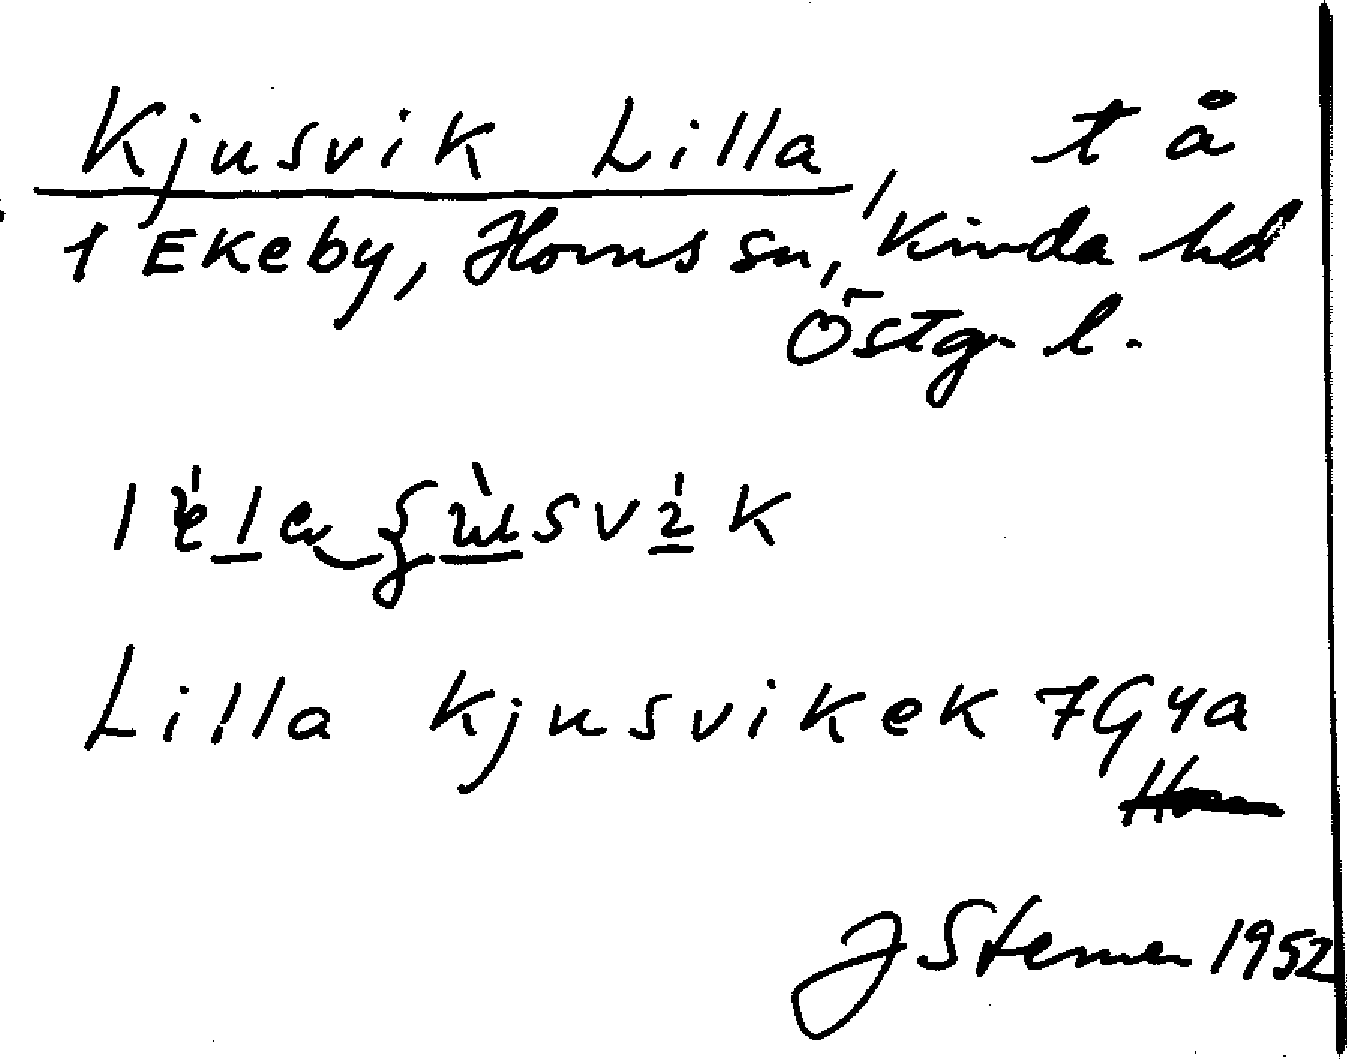 Kjusvik Lilla, t å
1 Ekeby, Horns sn, Kinda hd
Östg. l.
Lilla Kjusvik ek 7G4a
J Stemen 1952